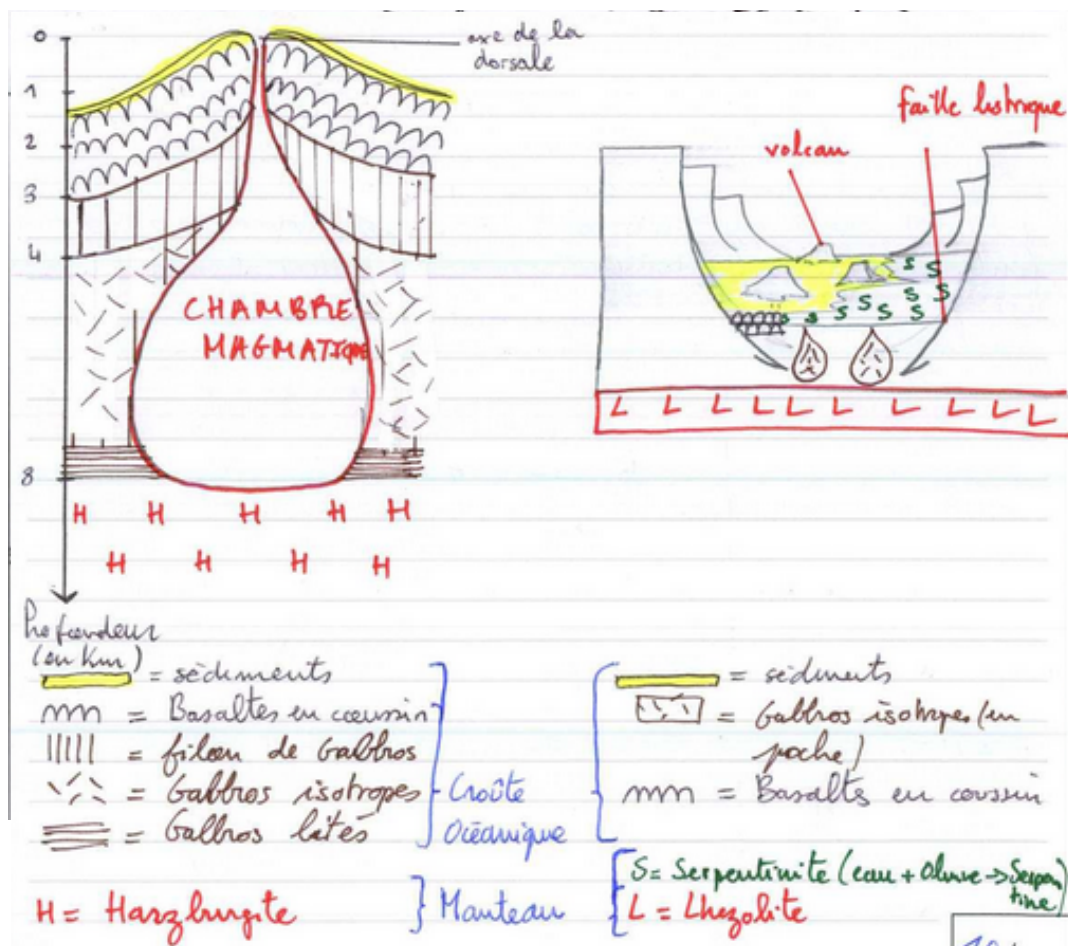 0
axe de la
dorsale
1
2
3
4
8
CHAMBRE
MAGMATIQUE
H H H H H
H H H H
Profondeur
(en Km)
volcan
faille listrique
S S S S S S S S S
L L L L L L L L L L
= sédiments
= Basaltes en coussin
= filon de Gabbros
= Gabbros isotropes
= Gabbros lités
Croûte
Océanique
H = Harzburgite
Manteau
= sédiments
= Gabbros isotropes (en
poche)
= Basaltes en coussin
S = Serpentinite (eau + Olivine → Serpen
tine)
L = Lhezolite